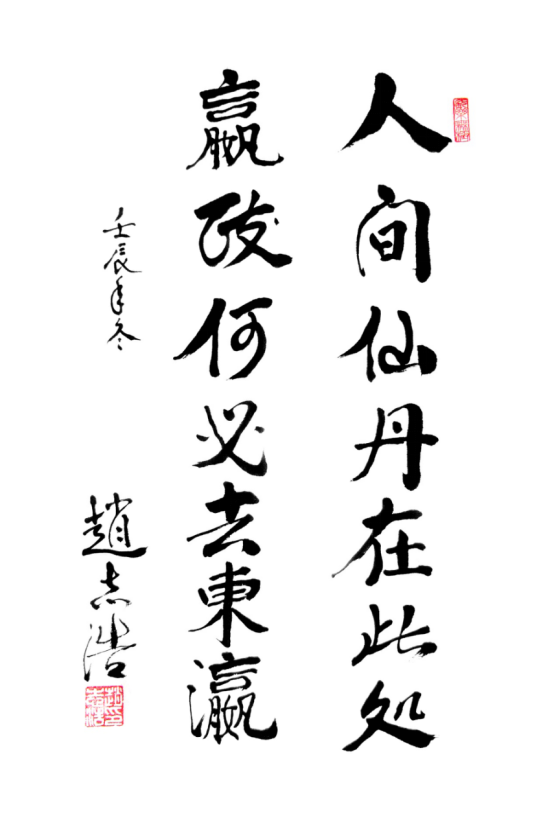 人间仙丹在此处
嬴政何必去東瀛
壬辰年冬
趙志浩